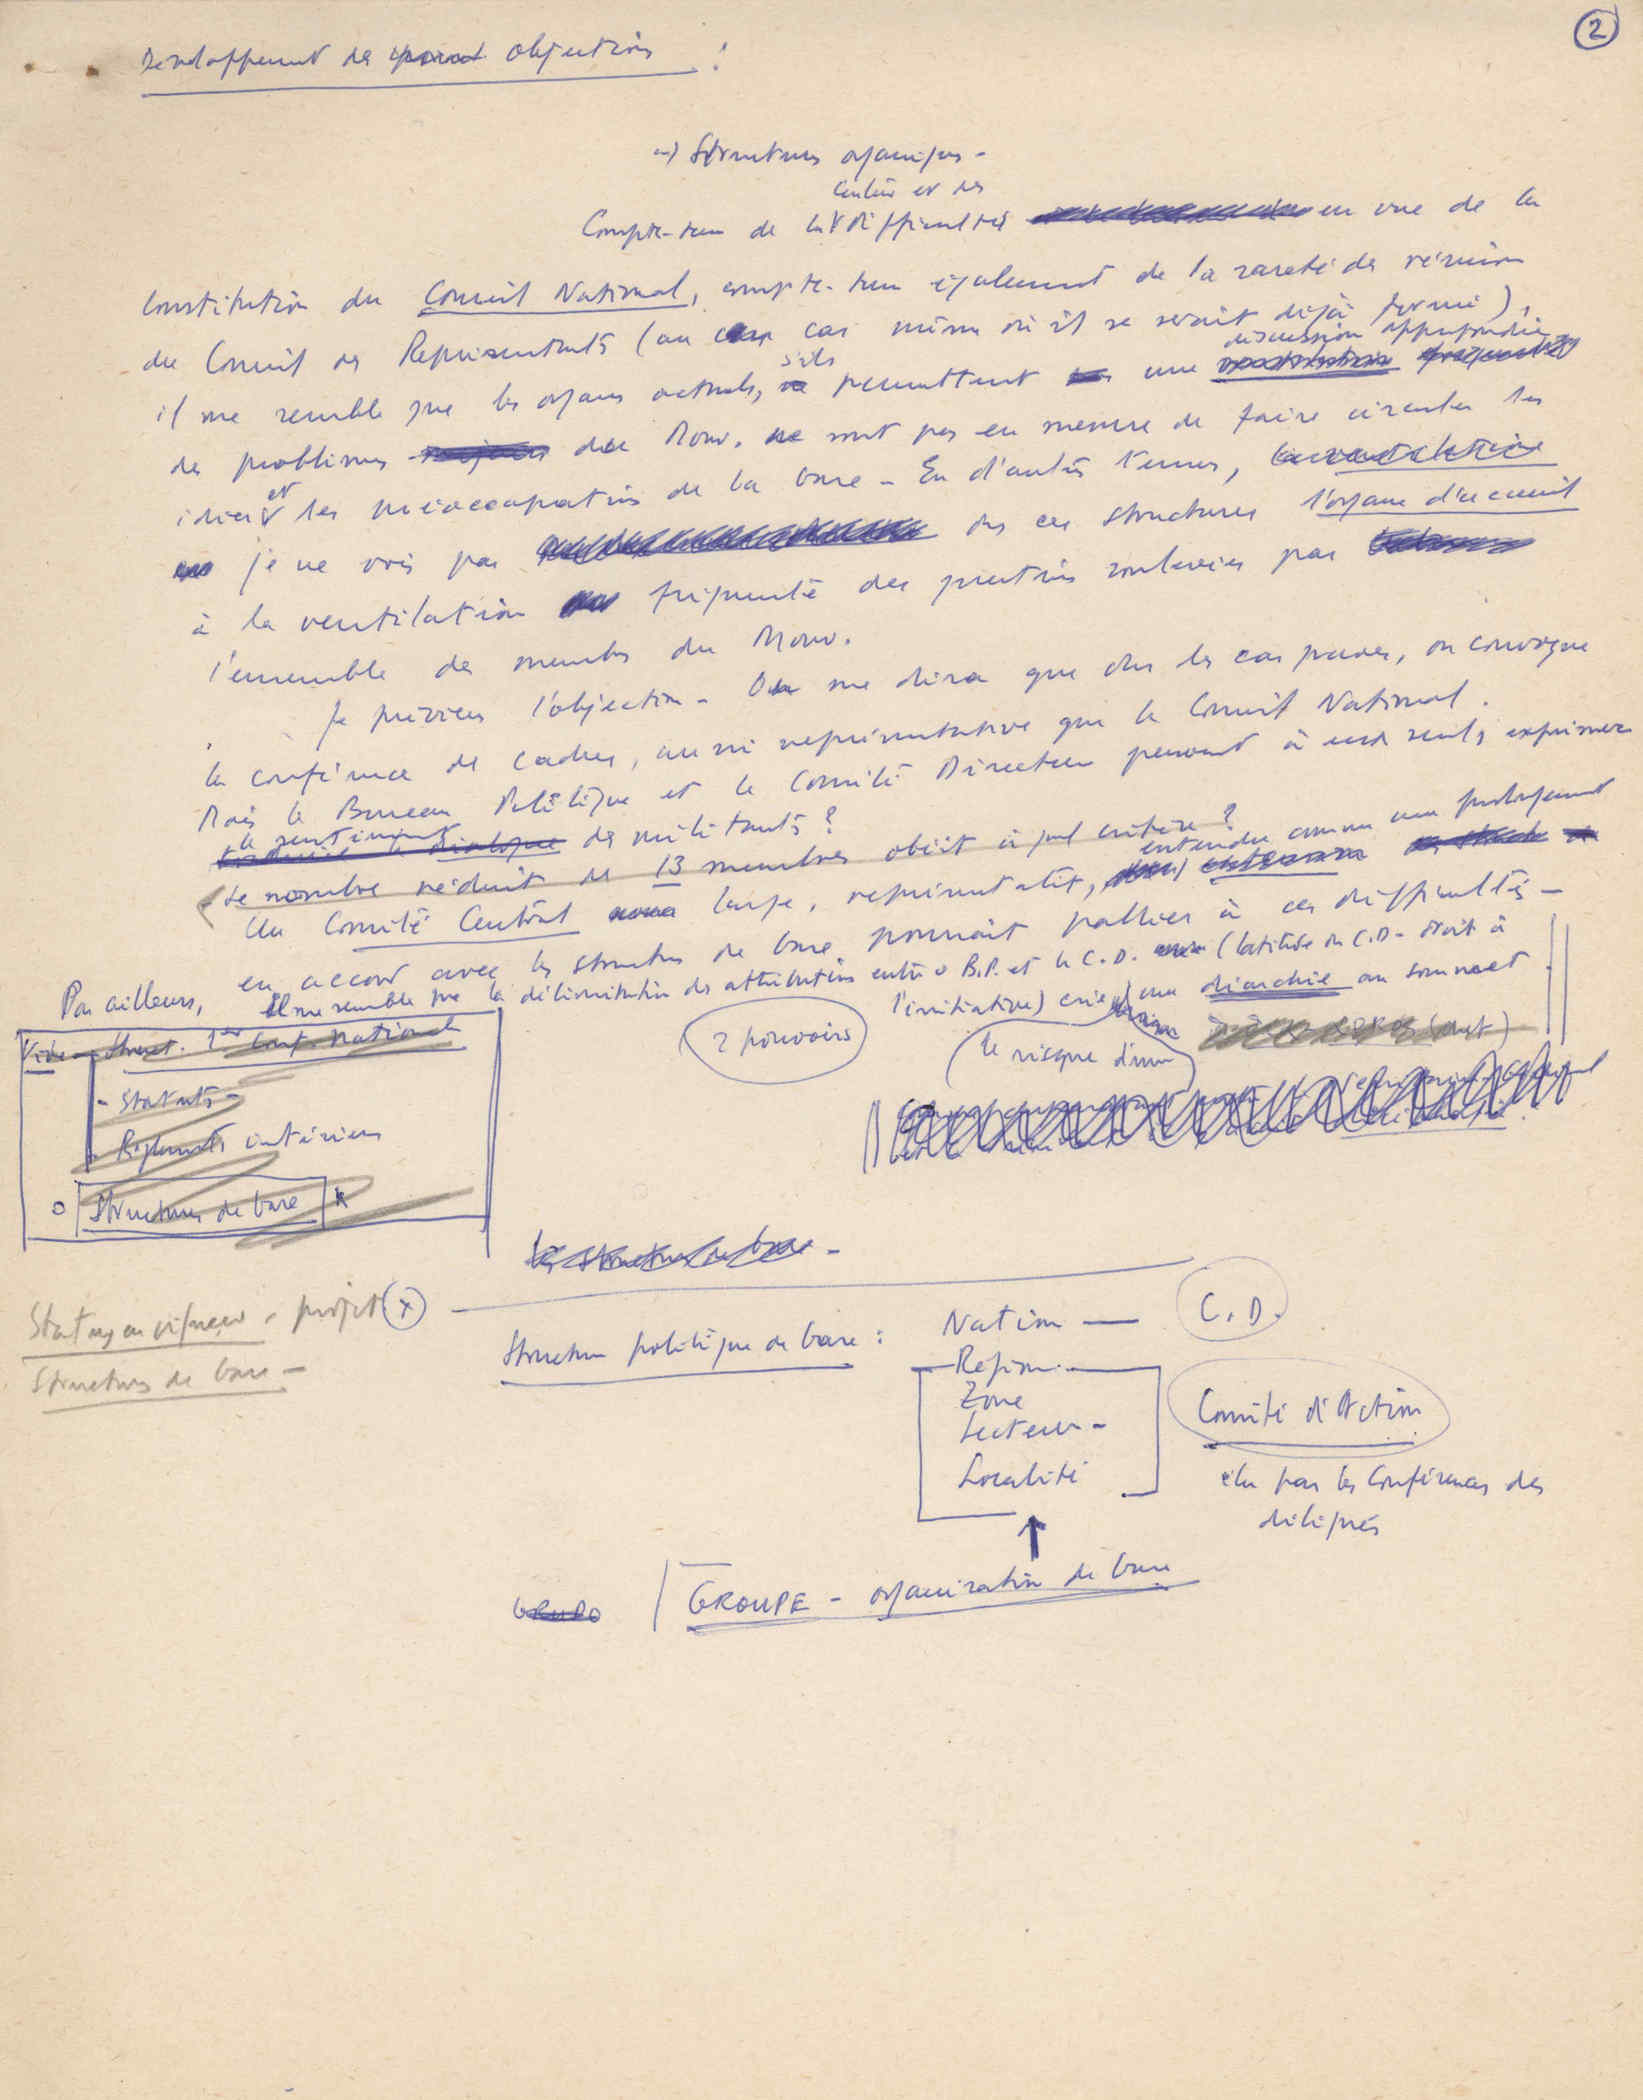 2
Développement des objections :
a) Structures organiques -
lenteurs et des
Compte-tenu de la difficultés en vue de la
Constitution du Conseil National, compte-tenu également de la rareté des réunions
du Conseil des Représentants (au cas même où il se serait déjà formé),
discussion approfondie
s'ils
il me semble que les organes actuels, permettent une
des problèmes du Mouv. ne sont pas en mesure de faire circuler les
idées et les préoccupations de la base - En d'autres termes, la ventilation
je ne vois pas ds ces structures l'organe d'accueil
à la ventilation fréquente des questions soulevées par
l'ensemble des membres du Mouv.
Je préviens l'objection - On me dira que ds les cas graves, on convoque
la conférence des cadres, aussi représentative que le Conseil National.
Mais le Bureau Politique et le Comité Directeur peuvent à eux seuls exprimer
le sentiment des militants ?
Le nombre réduit de 13 membres obéit à quel critère ?
entendu comme un prolongement
Un Comité Central large, représentatif,
en accord avec les structures de base pourrait pallier à ces difficultés -
Par ailleurs, Il me semble que la délimitation des attributions entre B.P. et le C.D. (latitude du C.D. - droit à
l'initiative) crée une diarchie au sommet
2 pouvoirs
le risque d'une
Vide - Struct. 1ère Conf. National
- Statuts -
- Règlements intérieurs
o Structures de base x
Les structures de base -
Statuts en vigueur - projet (x)
Structures de base -
Structure politique de base :
Nation — C.D.
Région
Zone
Secteur -
Localité
Comité d'Action
élu par les Conférences des
délégués
GRUPO
GROUPE - organisation de base